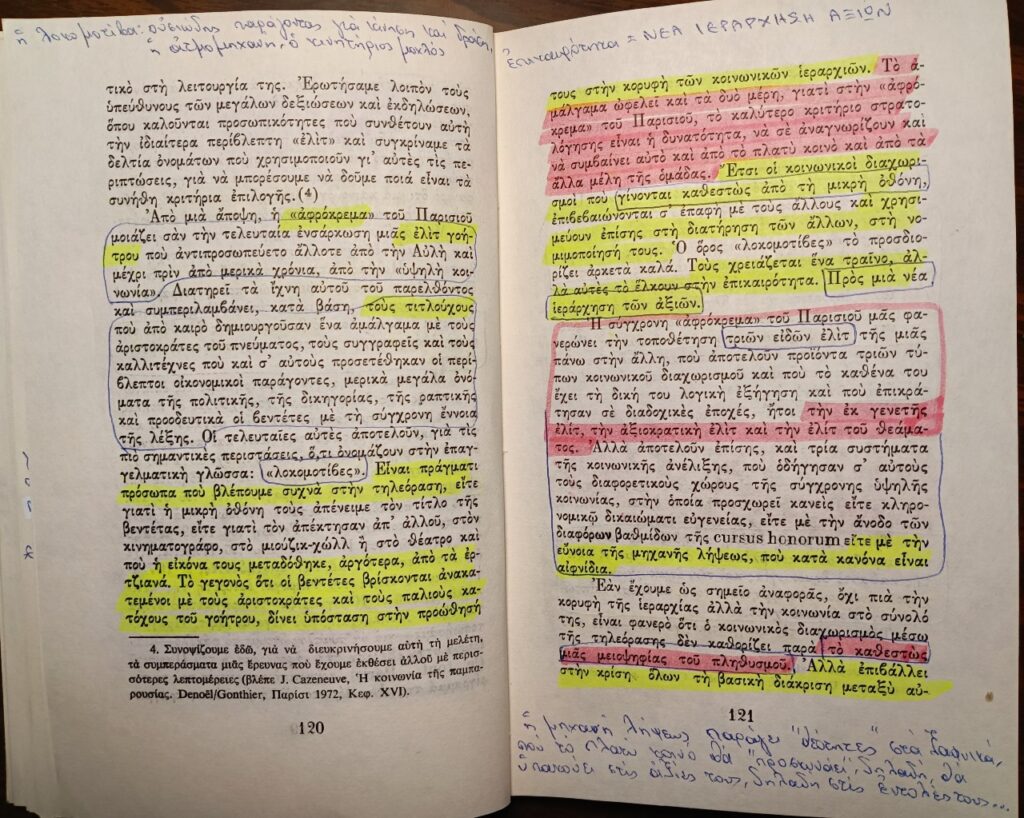 ἡ λοκομοτίβα: οὐσιώδης παράγοντας γιὰ κίνηση καὶ δράση,
ἡ ἀτμομηχανή, ὁ κινητήριος μοχλός
τικὸ στὴ λειτουργία της. Ἐρωτήσαμε λοιπὸν τοὺς
ὑπεύθυνους τῶν μεγάλων δεξιώσεων καὶ ἐκδηλώσεων,
ὅπου καλοῦνται προσωπικότητες ποὺ συνθέτουν αὐτὴ
τὴν ἰδιαίτερα περίβλεπτη «ἐλὶτ» καὶ συγκρίναμε τὰ
δελτία ὀνομάτων ποὺ χρησιμοποιοῦν γι' αὐτὲς τὶς πε-
ριπτώσεις, γιὰ νὰ μπορέσουμε νὰ δοῦμε ποιά εἶναι τὰ
συνήθη κριτήρια ἐπιλογῆς. (4)
Ἀπὸ μιὰ ἄποψη, ἡ «ἀφρόκρεμα» τοῦ Παρισιοῦ
μοιάζει σὰν τὴν τελευταία ἐνσάρκωση μιᾶς ἐλὶτ γοή-
τρου ποὺ ἀντιπροσωπευέτο ἄλλοτε ἀπὸ τὴν Αὐλὴ καὶ
μέχρι πρὶν ἀπὸ μερικὰ χρόνια, ἀπὸ τὴν «ὑψηλὴ κοι-
νωνία». Διατηρεῖ τὰ ἴχνη αὐτοῦ τοῦ παρελθόντος
καὶ συμπεριλαμβάνει, κατὰ βάση, τοὺς τιτλούχους
ποὺ ἀπὸ καιρὸ δημιουργοῦσαν ἕνα ἀμάλγαμα μὲ τοὺς
ἀριστοκράτες τοῦ πνεύματος, τοὺς συγγραφεῖς καὶ τοὺς
καλλιτέχνες ποὺ καὶ σ' αὐτοὺς προσετέθηκαν οἱ περί-
βλεπτοι οἰκονομικοὶ παράγοντες, μερικὰ μεγάλα ὀνό-
ματα τῆς πολιτικῆς, τῆς δικηγορίας, τῆς ραπτικῆς
καὶ προοδευτικὰ οἱ βεντέτες μὲ τὴ σύγχρονη ἔννοια
τῆς λέξης. Οἱ τελευταῖες αὐτὲς ἀποτελοῦν, γιὰ τὶς
πιὸ σημαντικὲς περιστάσεις, ὅ,τι ὀνομάζουν στὴν ἐπαγ-
γελματικὴ γλῶσσα: «λοκομοτίβες». Εἶναι πράγματι
πρόσωπα ποὺ βλέπουμε συχνὰ στὴν τηλεόραση, εἴτε
γιατὶ ἡ μικρὴ ὀθόνη τοὺς ἀπένειμε τὸν τίτλο τῆς
βεντέτας, εἴτε γιατὶ τὸν ἀπέκτησαν ἀπ' ἀλλοῦ, στὸν
κινηματογράφο, στὸ μιούζικ-χὼλλ ἢ στὸ θέατρο καὶ
ποὺ ἡ εἰκόνα τους μεταδόθηκε, ἀργότερα, ἀπὸ τὰ ἐρ-
τζιανά. Τὸ γεγονὸς ὅτι οἱ βεντέτες βρίσκονται ἀνακα-
τεμένοι μὲ τοὺς ἀριστοκράτες καὶ τοὺς παλιοὺς κα-
τόχους τοῦ γοήτρου, δίνει ὑπόσταση στὴν προώθησή
4. Συνοψίζουμε ἐδῶ, γιὰ νὰ διευκρινήσουμε αὐτὴ τὴ μελέτη,
τὰ συμπεράσματα μιᾶς ἔρευνας ποὺ ἔχουμε ἐκθέσει ἀλλοῦ μὲ περισ-
σότερες λεπτομέρειες (βλέπε J. Cazeneuve, Ἡ κοινωνία τῆς παμπα-
ρουσίας. Denoël/Gonthier, Παρίσι 1972, Κεφ. XVI).
120
ἐπικαιρότητα = ΝΕΑ ΙΕΡΑΡΧΗΣΗ ΑΞΙΩΝ
τους στὴν κορυφὴ τῶν κοινωνικῶν ἱεραρχιῶν. Τὸ ἀ-
μάλγαμα ὠφελεῖ καὶ τὰ δυὸ μέρη, γιατὶ στὴν «ἀφρό-
κρεμα» τοῦ Παρισιοῦ, τὸ καλύτερο κριτήριο στρατο-
λόγησης εἶναι ἡ δυνατότητα, νὰ σὲ ἀναγνωρίζουν καὶ
νὰ συμβαίνει αὐτὸ καὶ ἀπὸ τὸ πλατὺ κοινὸ καὶ ἀπὸ τὰ
ἄλλα μέλη τῆς ὁμάδας. Ἔτσι οἱ κοινωνικοὶ διαχωρι-
σμοὶ ποὺ γίνονται καθεστὼς ἀπὸ τὴ μικρὴ ὀθόνη,
ἐπιβεβαιώνονται σ' ἐπαφὴ μὲ τοὺς ἄλλους καὶ χρησι-
μεύουν ἐπίσης στὴ διατήρηση τῶν ἄλλων, στὴ νο-
μιμοποίησή τους. Ὁ ὅρος «λοκομοτίβες» τὸ προσδιο-
ρίζει ἀρκετὰ καλά. Τοὺς χρειάζεται ἕνα τραῖνο, ἀλ-
λὰ αὐτὲς τὸ ἕλκουν στὴν ἐπικαιρότητα. Πρὸς μιὰ νέα
ἱεράρχηση τῶν ἀξιῶν.
Ἡ σύγχρονη «ἀφρόκρεμα» τοῦ Παρισιοῦ μᾶς φα-
νερώνει τὴν τοποθέτηση τριῶν εἰδῶν ἐλὶτ τῆς μιᾶς
πάνω στὴν ἄλλη, ποὺ ἀποτελοῦν προϊόντα τριῶν τύ-
πων κοινωνικοῦ διαχωρισμοῦ καὶ ποὺ τὸ καθένα του
ἔχει τὴ δική του λογικὴ ἐξήγηση καὶ ποὺ ἐπικρά-
τησαν σὲ διαδοχικὲς ἐποχές, ἤτοι τὴν ἐκ γενετῆς
ἐλίτ, τὴν ἀξιοκρατικὴ ἐλὶτ καὶ τὴν ἐλὶτ τοῦ θεάμα-
τος. Ἀλλὰ ἀποτελοῦν ἐπίσης, καὶ τρία συστήματα
τῆς κοινωνικῆς ἀνέλιξης, ποὺ ὁδήγησαν σ' αὐτοὺς
τοὺς διαφορετικοὺς χώρους τῆς σύγχρονης ὑψηλῆς
κοινωνίας, στὴν ὁποία προσχωρεῖ κανεὶς εἴτε κληρο-
νομικῷ δικαιώματι εὐγενείας, εἴτε μὲ τὴν ἄνοδο τῶν
διαφόρων βαθμίδων τῆς cursus honorum εἴτε μὲ τὴν
εὔνοια τῆς μηχανῆς λήψεως, ποὺ κατὰ κανόνα εἶναι
αἰφνίδια.
Ἐὰν ἔχουμε ὡς σημεῖο ἀναφορᾶς, ὄχι πιὰ τὴν
κορυφὴ τῆς ἱεραρχίας ἀλλὰ τὴν κοινωνία στὸ σύνολό
της, εἶναι φανερὸ ὅτι ὁ κοινωνικὸς διαχωρισμὸς μέσω
τῆς τηλεόρασης δὲν καθορίζει παρὰ τὸ καθεστὼς
μιᾶς μειοψηφίας τοῦ πληθυσμοῦ. Ἀλλὰ ἐπιβάλλει
στὴν κρίση ὅλων τὴ βασικὴ διάκριση μεταξὺ αὐ-
121
ἡ μηχανὴ λήψεως παράγει "θεότητες" στὰ ξαφνικά,
ποὺ τὸ πλατὺ κοινὸ θὰ "προσκυνάει", δηλαδή, θὰ
ὑπακούει στὶς ἀξίες τους, δηλαδὴ στὶς ἐντολές τους...